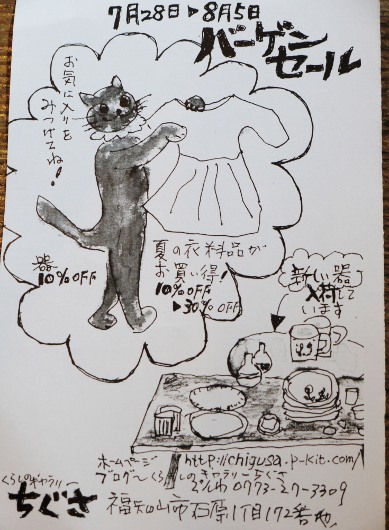 7月28日▶8月5日
バーゲン
セール
お気に入りを
みつけてね!
器
10%OFF
夏の衣料品が
お買い得!
10%OFF
▶30%OFF
新しい器
入荷して
います
ホームページ http://chigusa.p-kit.com/
ブログ くらしのギャラリーちぐさ
くらしのギャラリー
ちぐさ
でんわ 0773-27-3309
福知山市石原1丁目172番地